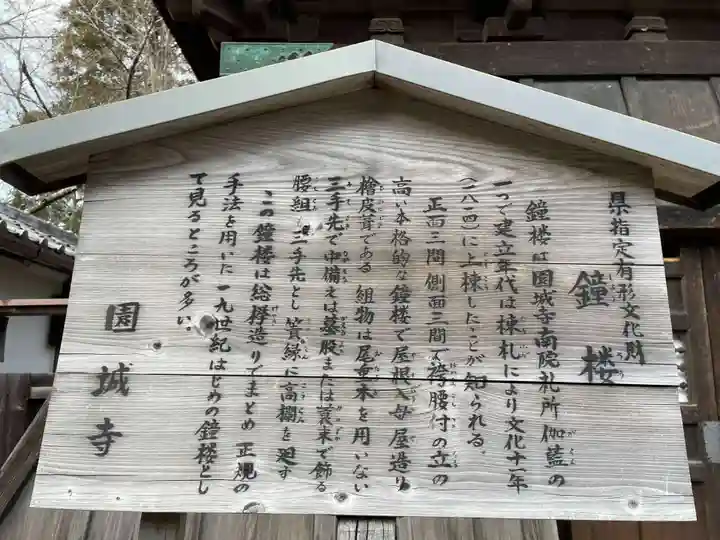 県指定有形文化財
鐘楼
鐘楼は園城寺南院札所伽藍の
一つで建立年代は棟札により文化十一年
(一八一四)に上棟したことが知られる。
正面三間側面二間で袴腰付の立の
高い本格的な鐘楼で屋根入母屋造り
檜皮葺である 組物は尾垂木を用いない
三手先で中備えは蟇股または蓑束で飾る
腰組も三手先とし簀縁に高欄を廻す
この鐘楼は総欅造りでまとめ 正規の
手法を用いた一九世紀はじめの鐘楼とし
て見るところが多い。
園城寺